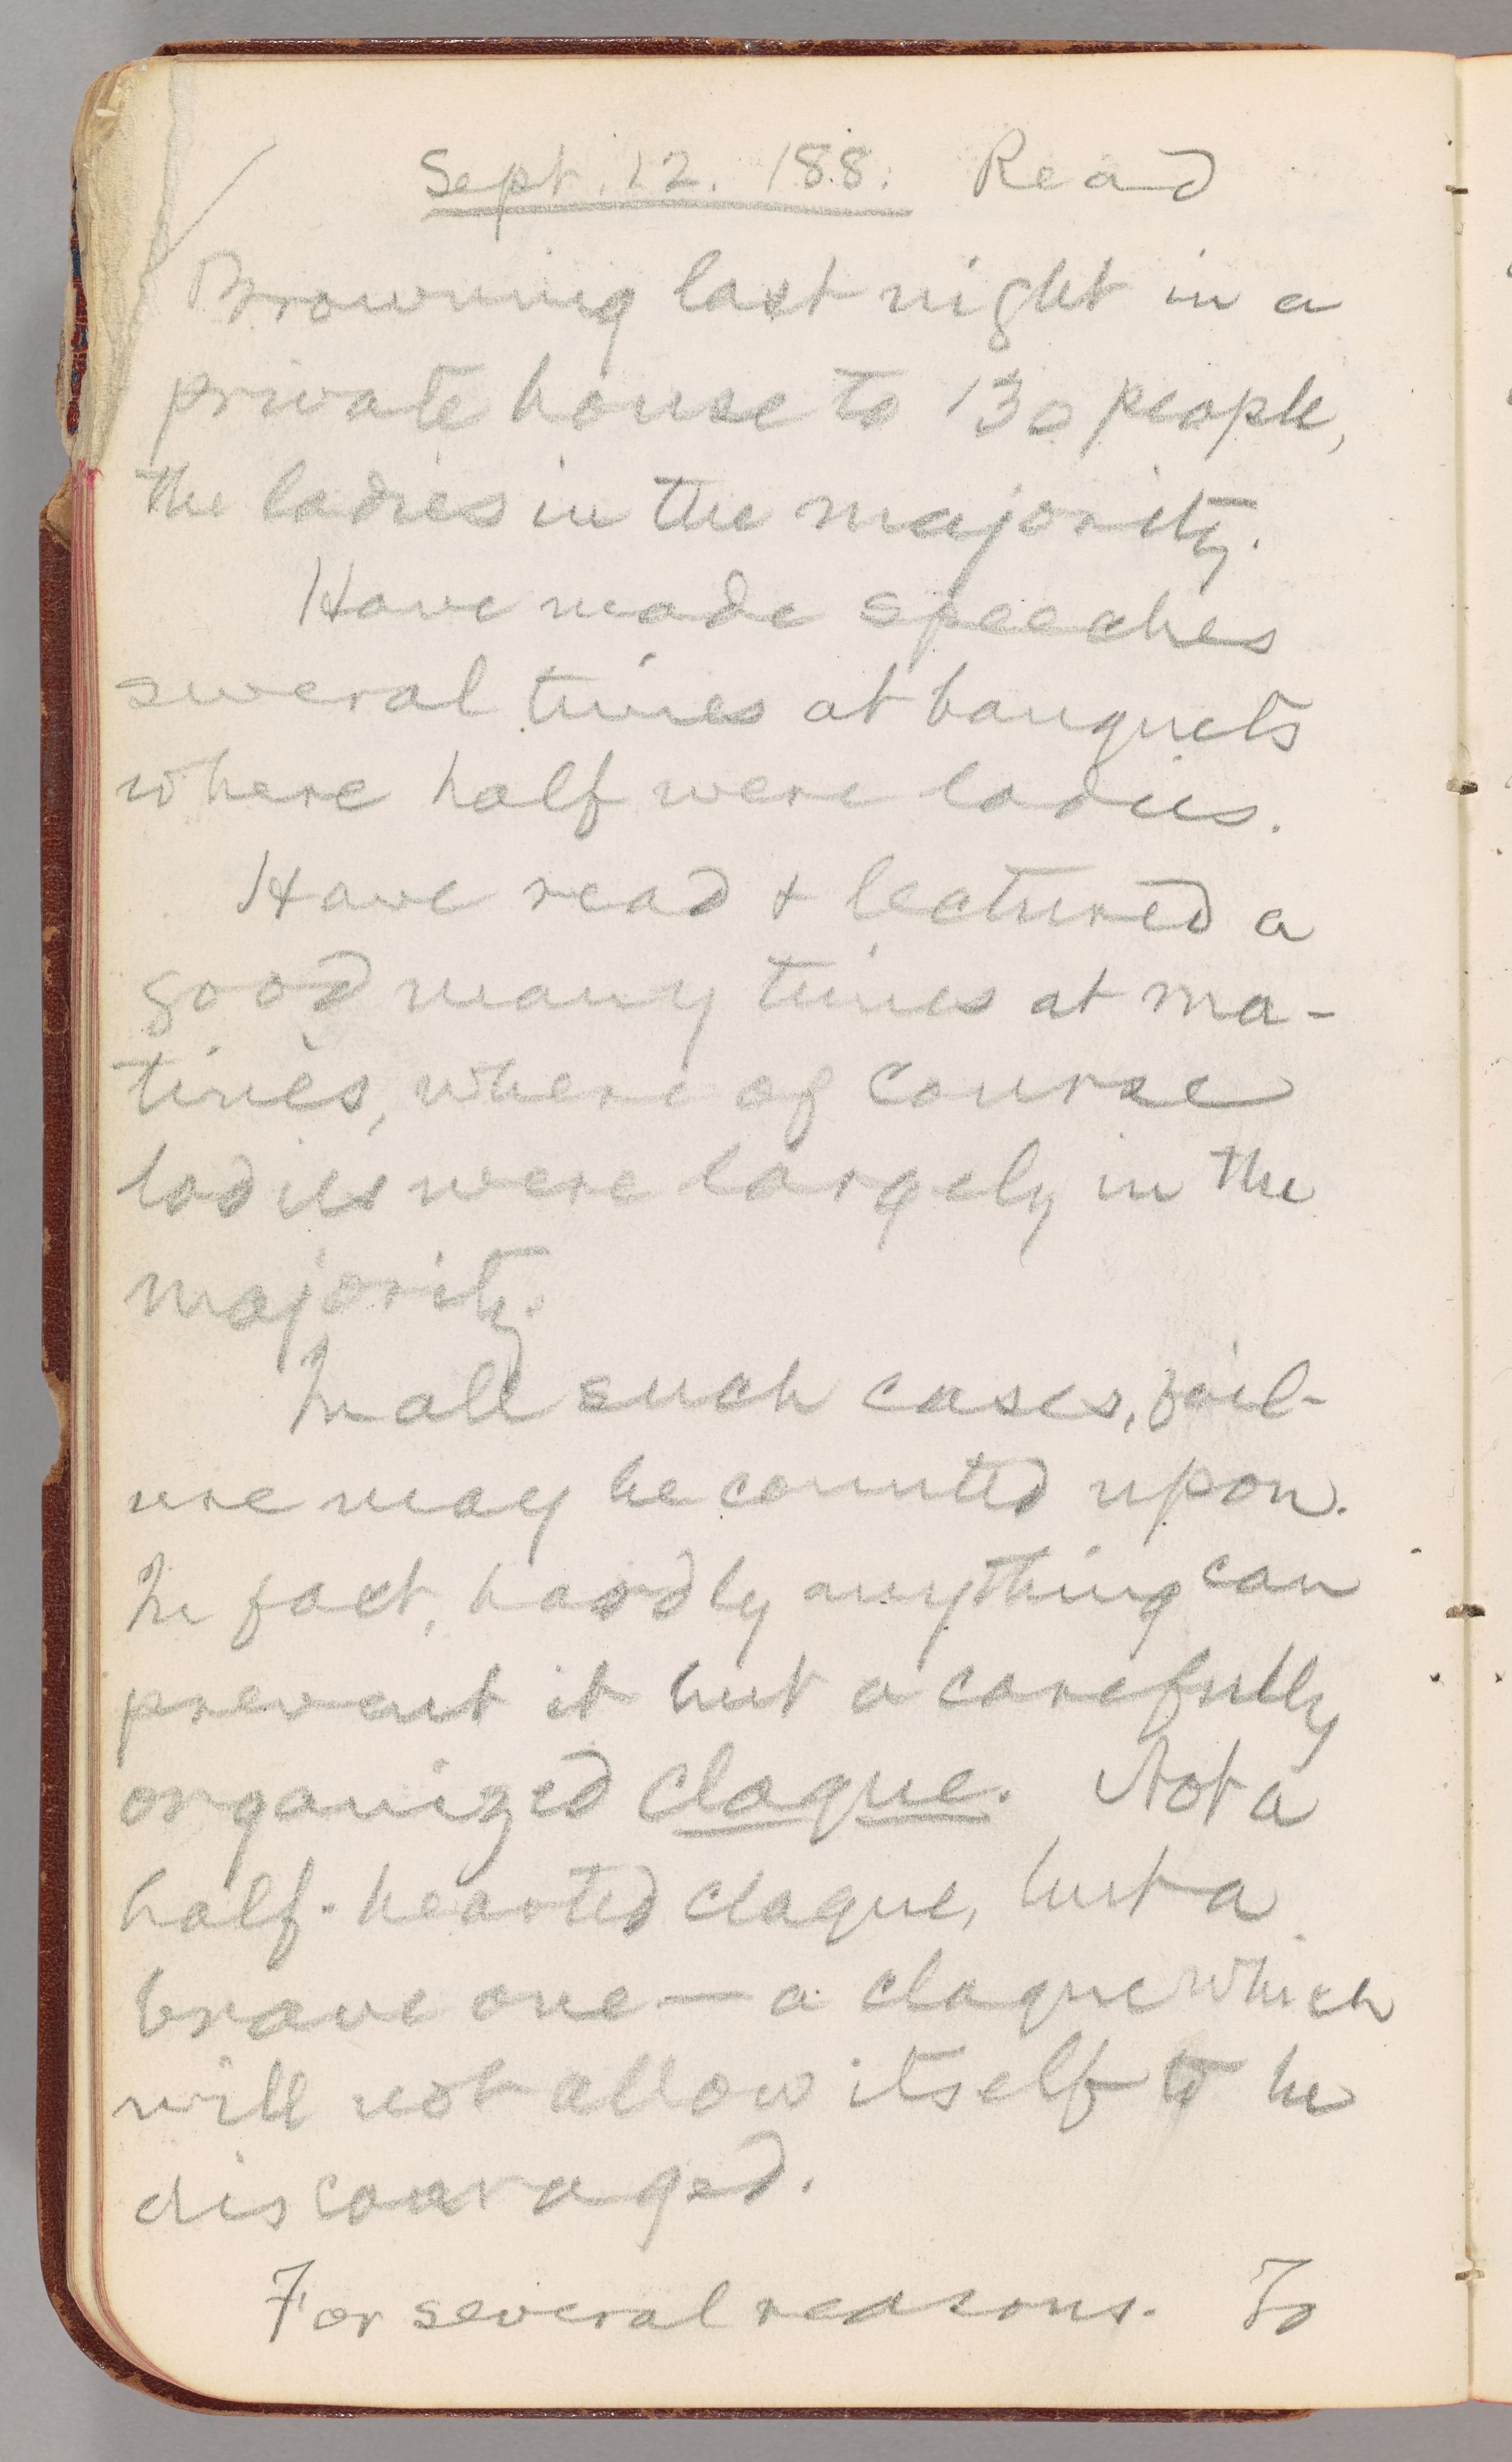 Sept. 12. 188. Read
Browning last night in a
private house to 130 people,
the ladies in the majority.
Have made speeches
several times at banquets
where half were ladies.
Have read & lectured a
good many times at ma-
tinés, where of course
ladies were largely in the
majority.
In all such cases, fail-
ure may be counted upon.
In fact, hardly anything can
prevent it but a carefully
organized claque. Not a
half-hearted claque, but a
brave one — a claque which
will not allow itself to be
discouraged.
For several reasons. To